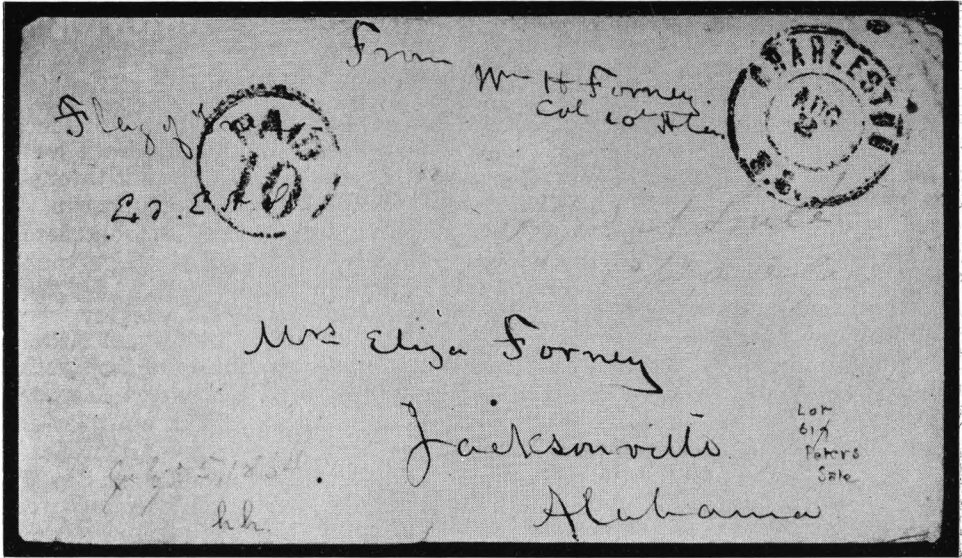 From
Wm H Forney.
Col 10th Ala.
Flag of Truce
PAID
10
CHARLESTON
AUG
2
S.C.
Mrs Eliza Forney
Jacksonville
Alabama
Lot
619
Peters
Sale